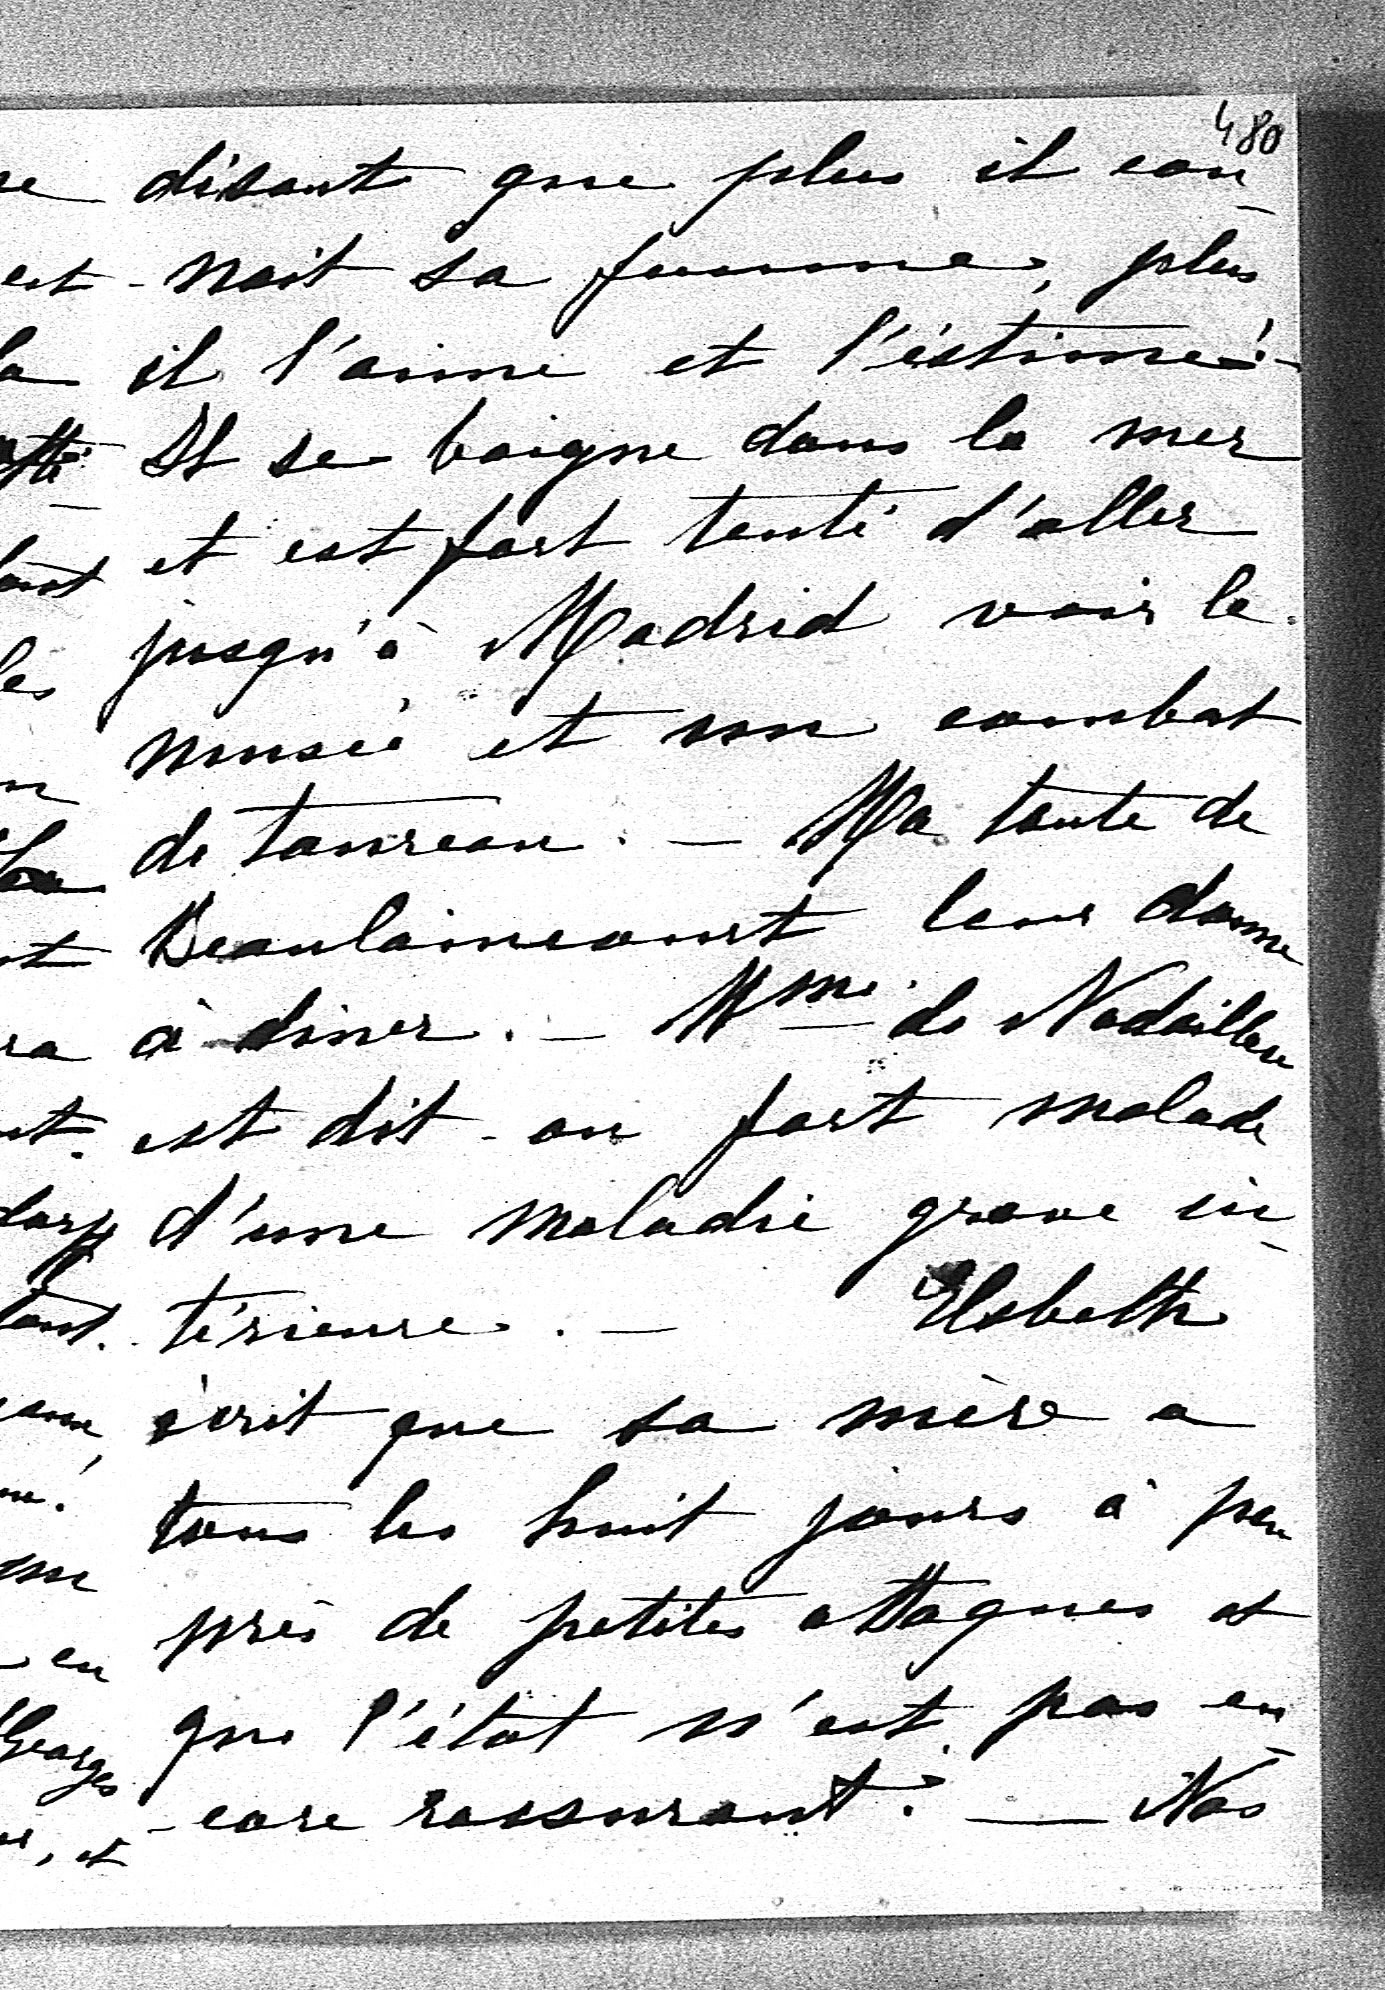 480
disant que plus il con-
-nait sa femme, plus
il l'aime et l'éstime!-
Il se baigne dans la mer
et est fort tenté d'aller
jusqu'à Madrid voir le
musée et un combat
de taureau. - Ma tante de
Beaulaincourt leur donne
à diner. - Mme de Nadaillac
est dit-on fort malade
d'une maladie grave in-
térieure. - Elsbeth
écrit que sa mère a
tous les huit jours à peu
près de petites attaques et
que l'état n'est pas en-
-core rassurant. — Nos